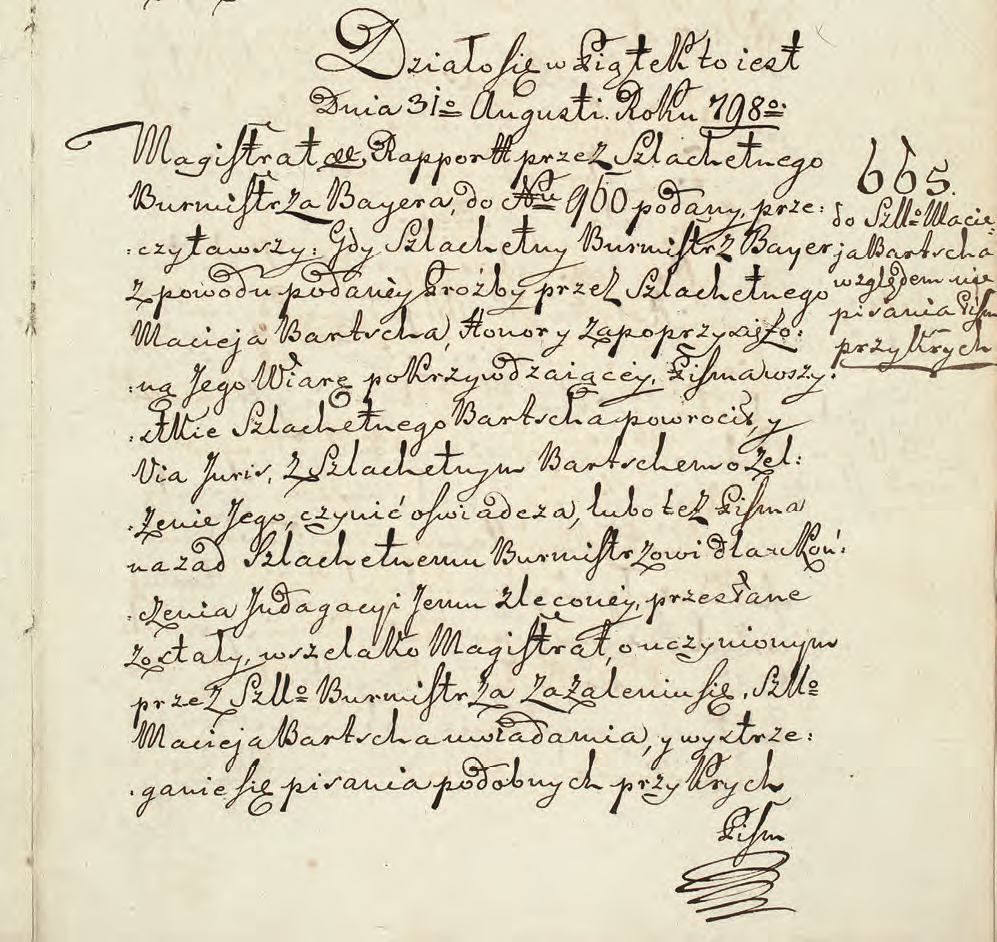 Działo się w Piątek to iest
Dnia 31o Augusti. Roku 798o.
Magistrat &c, Rapport przez Szlachetnego
Burmistrza Bayera, do Nu 960 podany, prze:
:czytawszy: Gdy Szlachetny Burmistrz Bayer
z powodu podaney Proźby przez Szlachetnego
Macieja Bartscha, Honor y zapoprzysiężo:
:ną Jego Wiarę pokrzywdzaiącey, Pisma wszy:
:stkie Szlachetnego Bartscha powrocił, y
Via Juris, z Szlachetnym Bartschem o Zel:
:zenie Jego, czynić oswiadcza, lubo tez Pisma
nazad Szlachetnemu Burmistrzowi dla skoń:
:czenia Indagacyi Jemu zleconey, przesłane
zostały, wszelako Magistrat, o uczynionym
przez Szllo Burmistrza Zażaleniu się, Szllo
Macieja Bartscha uwiadamia, y wystrze:
:ganie się pisania podobnych przykrych
Pism
665.
do Szllo Macie
ja Bartscha
względem nie
pisania Pism
przykrych